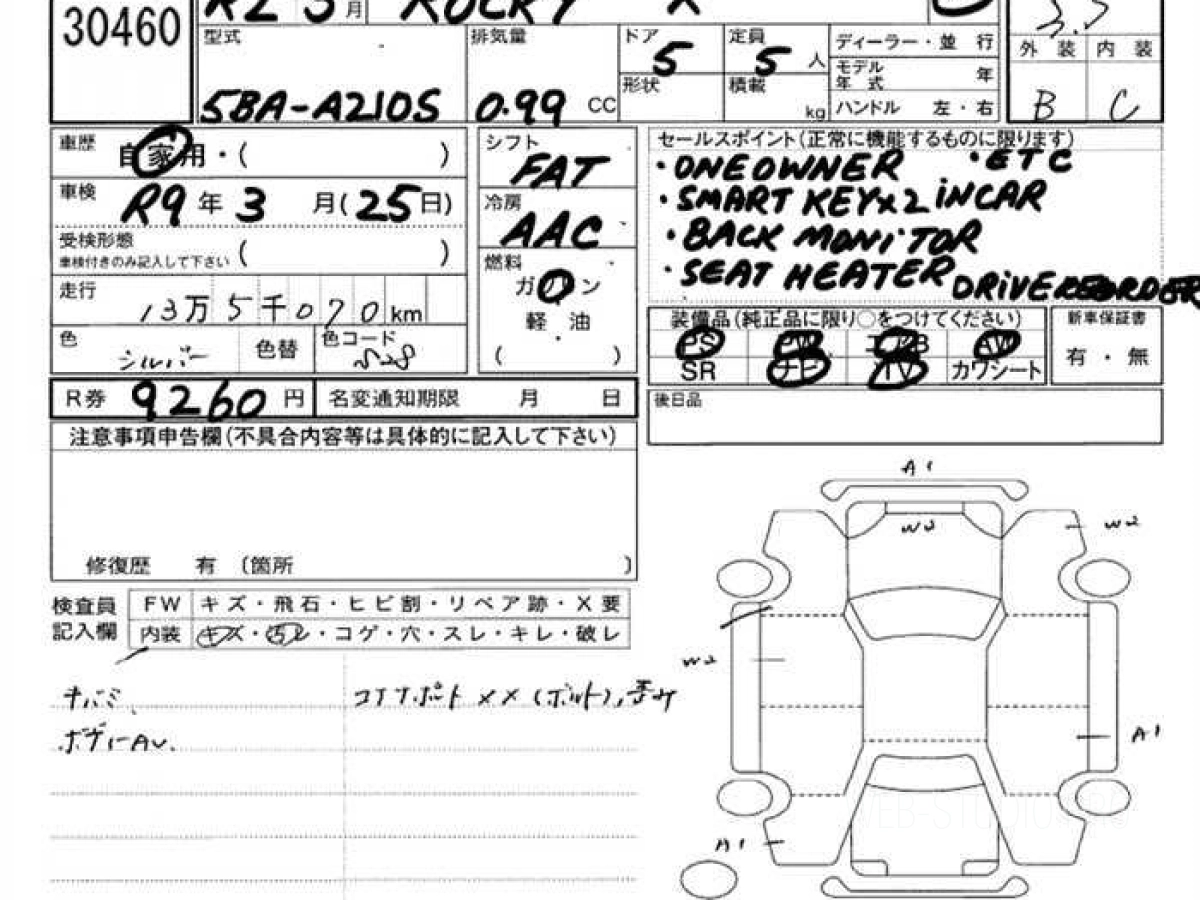 30460
R2 3月 ROCKY X
3.5
型式 5BA-A210S
排気量 0.99 CC
ドア 5
定員 5 人
形状
積載 kg
ディーラー・並 行
モデル年 式 年
ハンドル 左・右
外 装 内 装
B C
車歴 自家用・( )
車検 R9年3月(25日)
受検形態
車検付きのみ記入して下さい ( )
走行 13万5千070km
色 シルバー 色替 色コード S28
シフト FAT
冷房 AAC
燃料 ガソリン
軽 油
( )
セールスポイント(正常に機能するものに限ります)
・ONEOWNER ・ETC
・SMART KEY×2 iNCAR
・BACK MONiTOR
・SEAT HEATER DRiVE RECORDER
装備品(純正品に限り○をつけてください)
PS PW エアB AW
SR ナビ TV カワシート
新車保証書
有・無
R券 9260円 名変通知期限 月 日
後日品
注意事項申告欄(不具合内容等は具体的に記入して下さい)
修復歴 有 〔箇所 〕
検査員記入欄
FW キズ・飛石・ヒビ割・リペア跡・X要
内装 キズ・汚レ・コゲ・穴・スレ・キレ・破レ
キバミ、
ボディーAU.
コアサポート XX (ボルト), 歪み
A1
W2
W2
W2
A1
A1